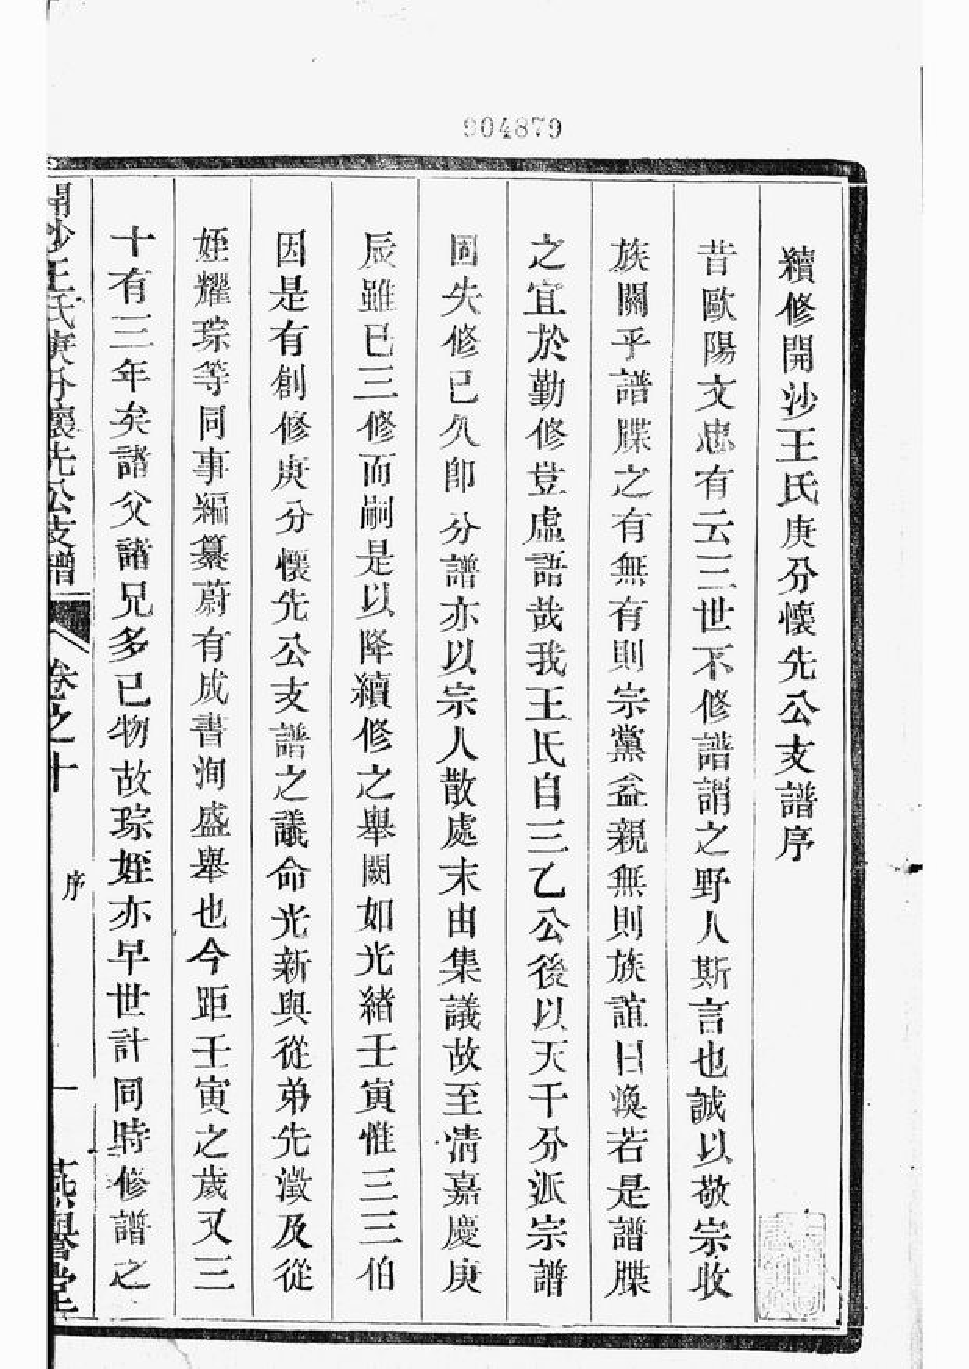 904879
續修開沙王氏庚分懷先公支譜序
昔歐陽文忠有云三世不修譜謂之野人斯言也誠以敬宗收
族關乎譜牒之有無有則宗黨益親無則族誼日渙若是譜牒
之宜於勤修豈虛語哉我王氏自三乙公後以天干分派宗譜
固失修已久即分譜亦以宗人散處末由集議故至清嘉慶庚
辰雖已三修而嗣是以降續修之舉闕如光緒壬寅惟三三伯
因是有創修庚分懷先公支譜之議命光新與從弟先澂及從
姪耀琮等同事編纂蔚有成書洵盛舉也今距壬寅之歲又三
十有三年矣諸父諸兄多已物故琮姪亦早世計同時修譜之
開沙王氏庚分懷先公支譜 卷之十 序 一 燕譽堂